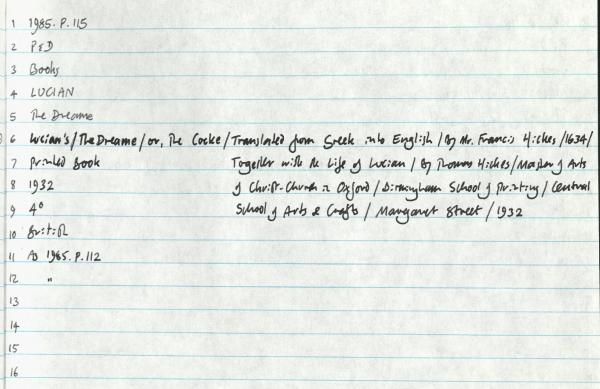 1 1985. P. 115
2 P&D
3 Books
4 LUCIAN
5 The Dreame
6 Lucian's / The Dreame / or, The Cocke / Translated from Greek into English / By Mr. Francis Hickes / 1634 /
7 Printed Book Together with the Life of Lucian / By Thomas Hickes / Master of Arts
8 1932 of Christ-Church in Oxford / Birmingham School of Printing / Central
9 4° School of Arts & Crafts / Margaret Street / 1932
10 British
11 As 1985. P. 112
12 "
13
14
15
16